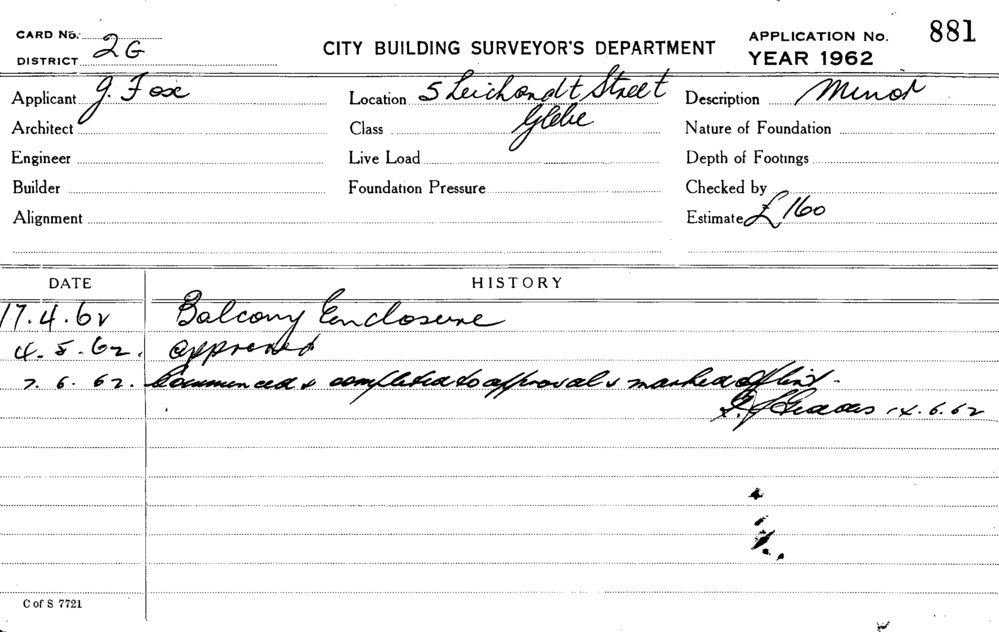 CARD No.
DISTRICT 2G
CITY BUILDING SURVEYOR'S DEPARTMENT
APPLICATION No. 881
YEAR 1962
Applicant J. Fox
Location 5 Leichardt Street
Glebe
Description Minor
Architect
Class
Nature of Foundation
Engineer
Live Load
Depth of Footings
Builder
Foundation Pressure
Checked by
Alignment
Estimate £160
DATE HISTORY
17.4.62 Balcony Enclosure
4.5.62. approved
7.6.62. Commenced & completed to approval & marked off list.
14.6.62
C of S 7721